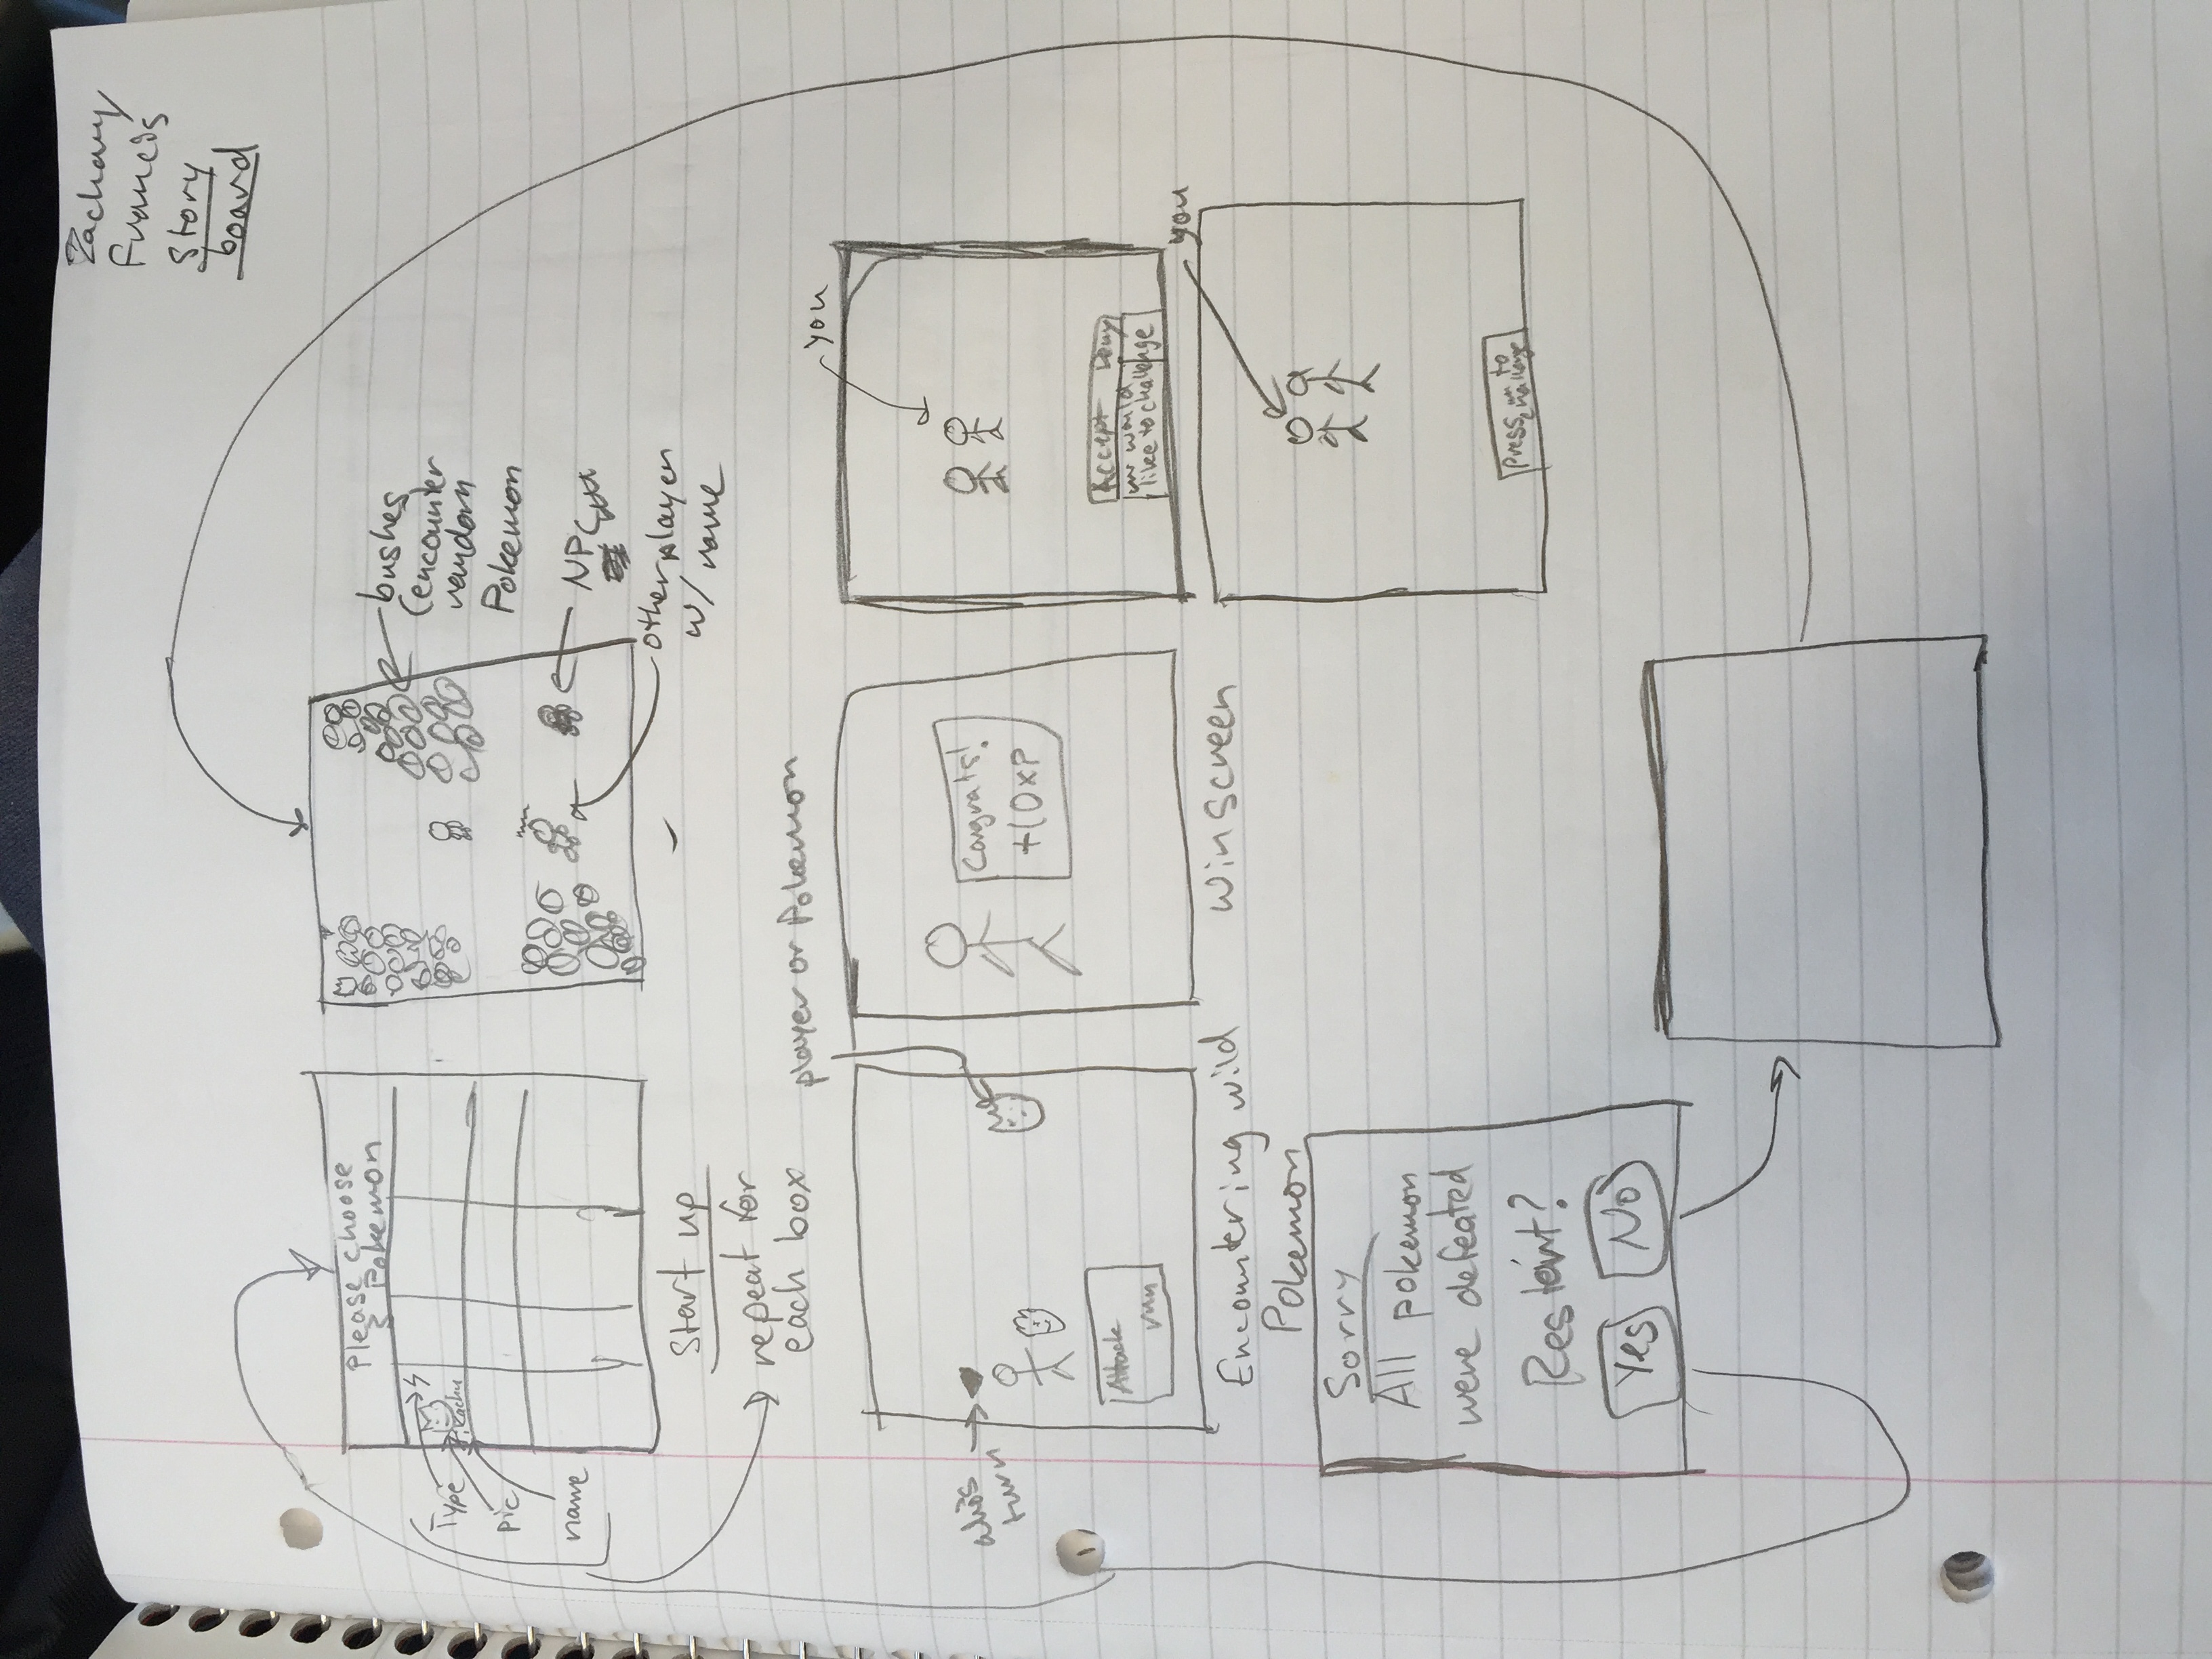 Zachary
Francis
Story
board
Please choose
3 Pokemon
Type
Pikachu
pic
name
Start up
repeat for
each box
bushes
(encounter
random
Pokemon
NPC
other player
w/ name
player or Pokemon
who's
turn
Attack
run
Encountering wild
Pokemon
Congrats!
+10xp
Win screen
you
Accept Deny
would
like to challenge
you
Press to
challenge
Sorry
All pokemon
were defeated
Restart?
Yes No